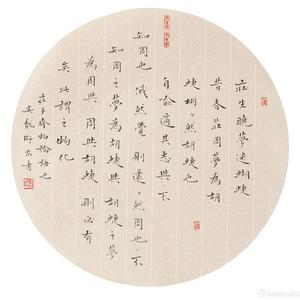 莊生曉夢迷蝴蝶
昔者莊周夢為胡
蝶栩栩然胡蝶也
自俞適其志與不
知周也俄然覺則遽遽然周也不
知周之夢為胡蝶與胡蝶之夢
為周與周與胡蝶則必有
矣此謂之物化
莊子齊物論語也